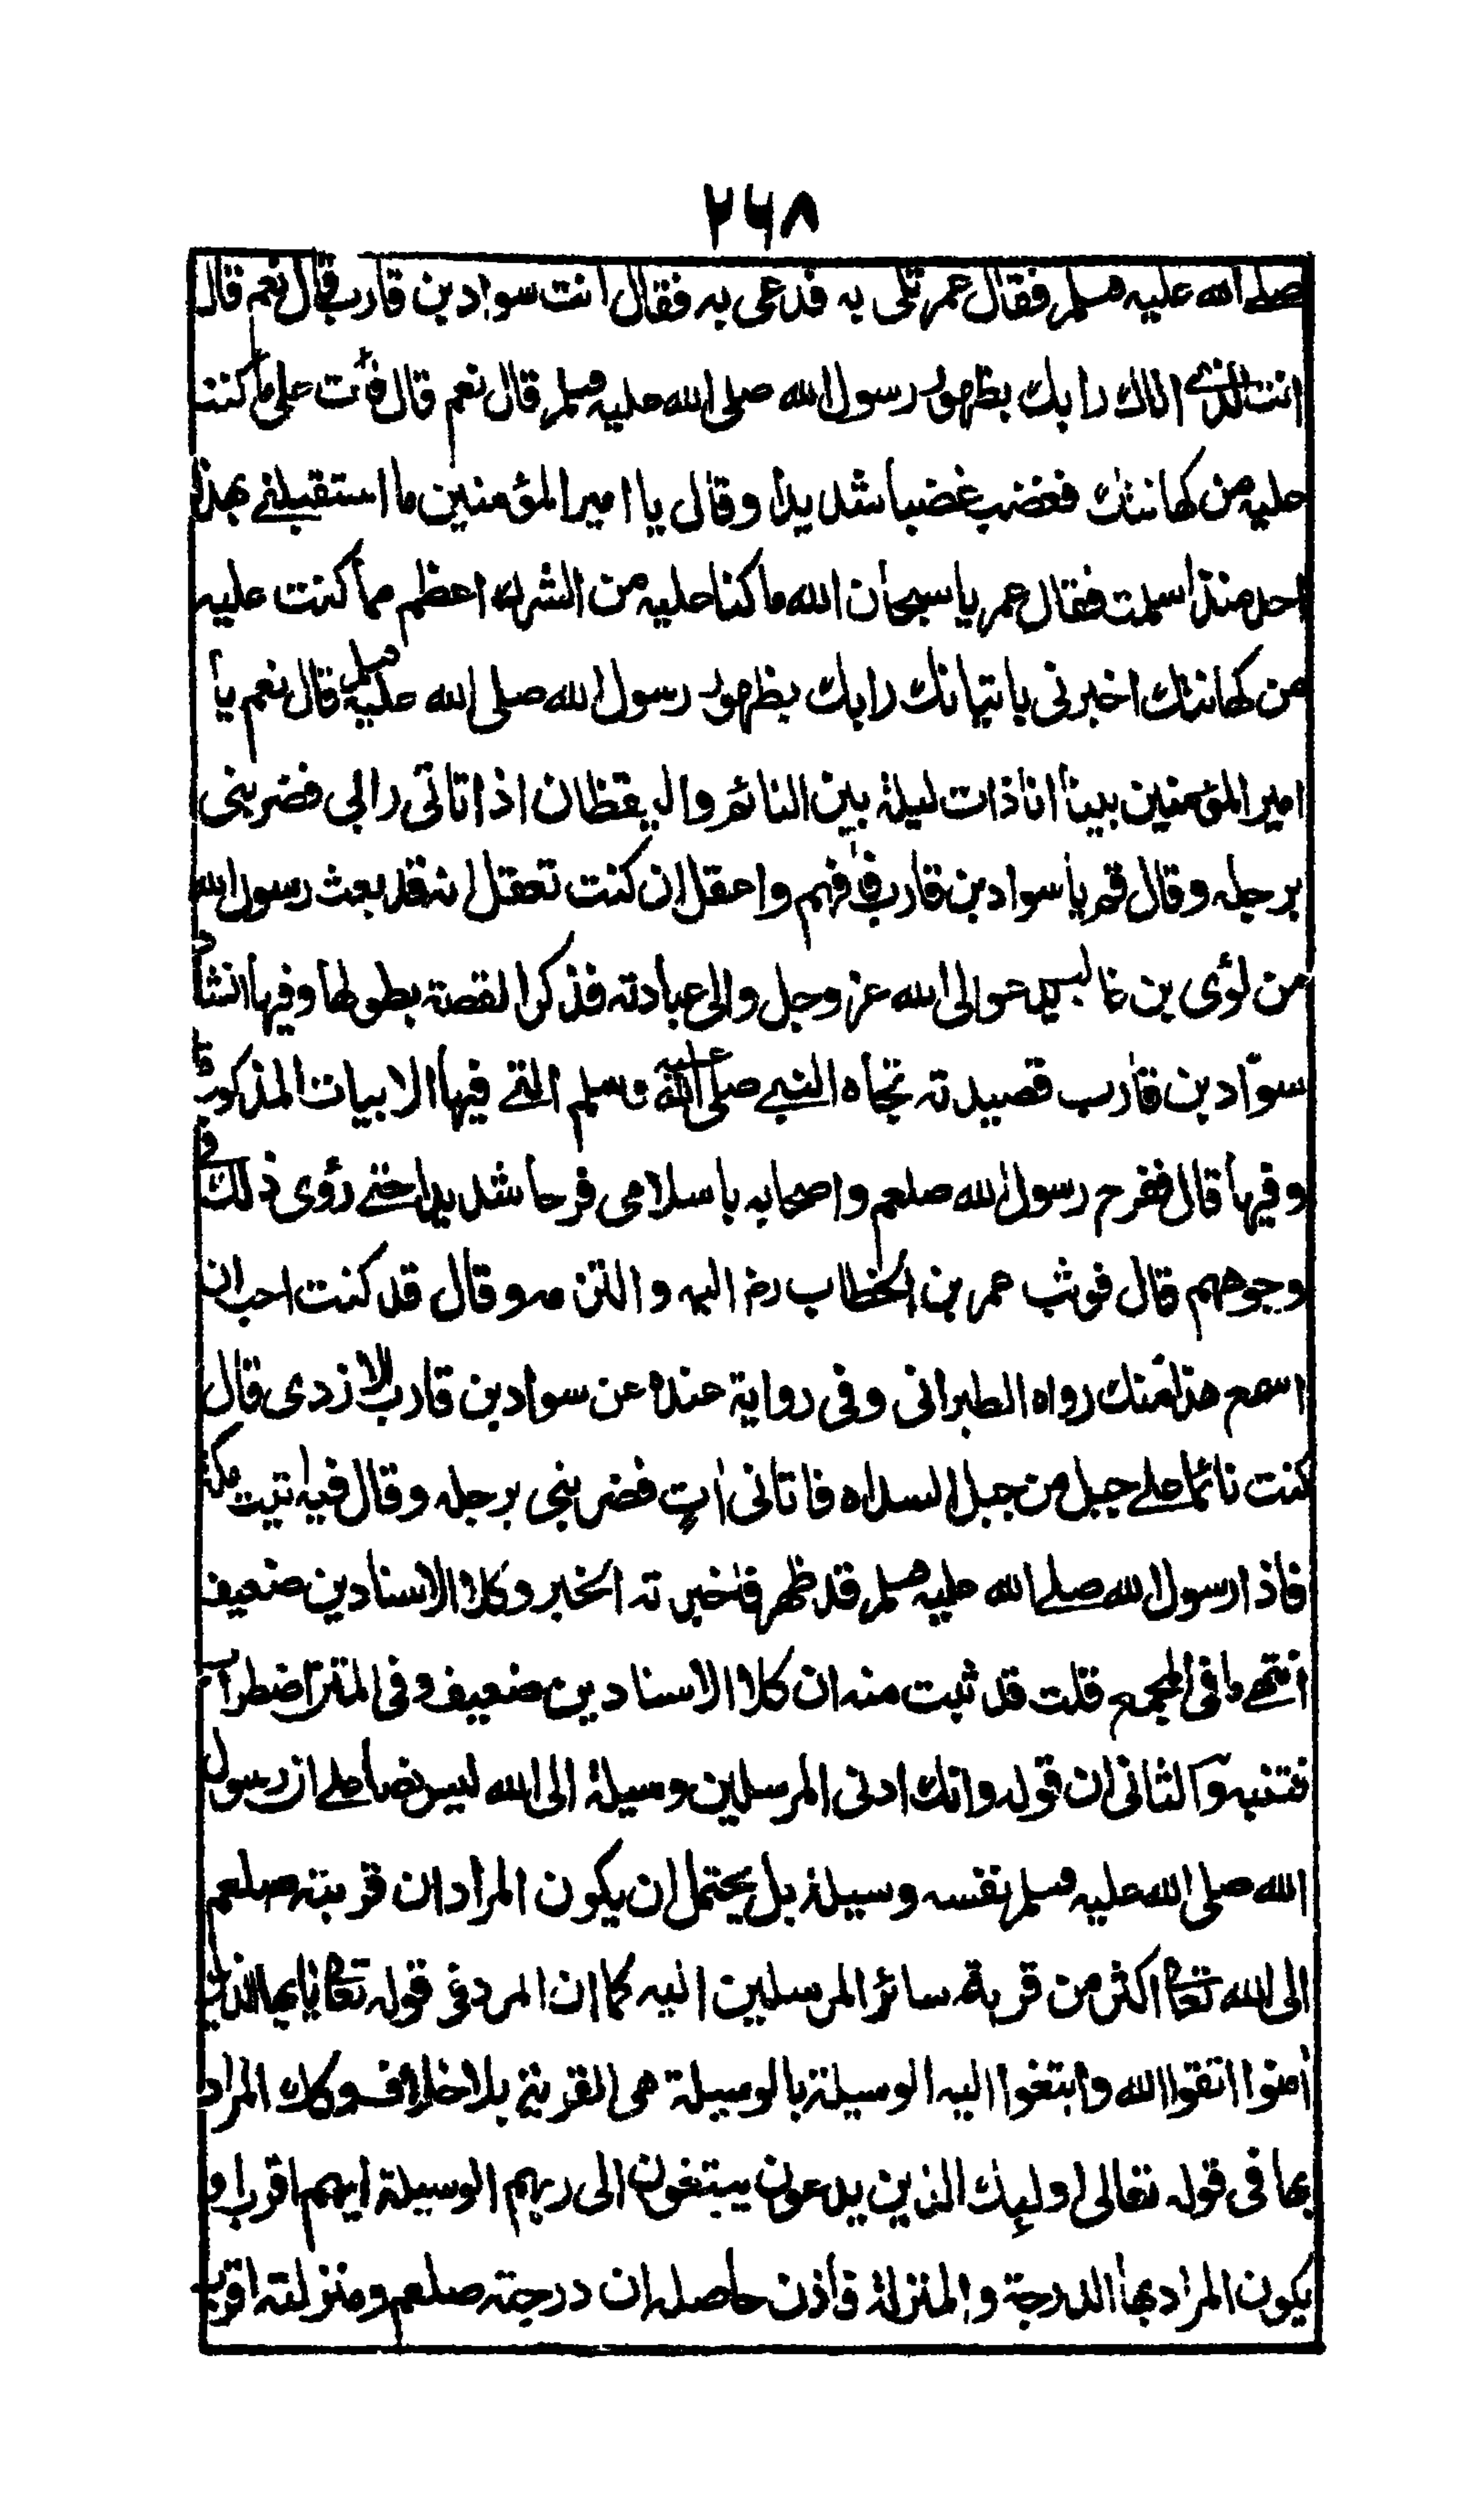 ٢٦٨
صلى الله عليه وسلم فقال عمر علي به فدعى به فقال انت سواد بن قارب قال نعم قال
انت الذي اتاك رايك بظهور رسول الله صلى الله عليه وسلم قال نعم قال فانت على ما كنت
عليه من كهانتك فغضب غضبا شديدا وقال يا امير المؤمنين ما استقبلني بهذا
احد منذ اسلمت فقال عمر يا سبحان الله ما كنا عليه من الشرك اعظم مما كنت عليه
من كهانتك اخبرني باتيانك رايك بظهور رسول الله صلى الله عليه وسلم قال نعم يا
امير المؤمنين بينا انا ذات ليلة بين النائم واليقظان اذ اتاني رايي فضربني
برجله وقال قم يا سواد بن قارب فافهم واعقل ان كنت تعقل انه قد بعث رسول الله
من لؤي بن غالب يدعو الى الله عز وجل والى عبادته فذكر القصة بطولها وفيها انشاد
سواد بن قارب قصيدته تجاه النبي صلى الله عليه وسلم التي فيها الابيات المذكورة
وفيها قال ففرح رسول الله صلعم واصحابه باسلامي فرحا شديدا حتى رؤي ذلك في
وجوههم قال فوثب عمر بن الخطاب رض اليه والتزمه وقال قد كنت احب ان
اسمع هذا منك رواه الطبراني وفي رواية عنده عن سواد بن قارب الازدي قال
كنت نائما على جبل من جبل السراه فاتاني ات فضربني برجله وقال فيه اتيت مكة
فاذا رسول الله صلى الله عليه وسلم قد ظهر فاخبرته الخبر وكلا الاسنادين ضعيف
انتهى ما في المجمع قلت قد ثبت منه ان كلا الاسنادين ضعيف وفي المتن اضطراب
فتنبه والثاني ان قوله وانك ادنى المرسلين وسيلة الى الله ليس نصا على ان رسول
الله صلى الله عليه وسلم نفسه وسيلة بل يحتمل ان يكون المراد ان قربته صلعم
الى الله تعالى اكثر من قربة سائر المرسلين اليه كما ان المراد في قوله تعالى يايها الذين
امنوا اتقوا الله وابتغوا اليه الوسيلة بالوسيلة هي القربة بلا خلاف وكذلك المراد
بها في قوله تعالى اولئك الذين يدعون يبتغون الى ربهم الوسيلة ايهم اقرب او
يكون المراد بها الدرجة والمنزلة فاذن حاصله ان درجته صلعم ومنزلته اقرب